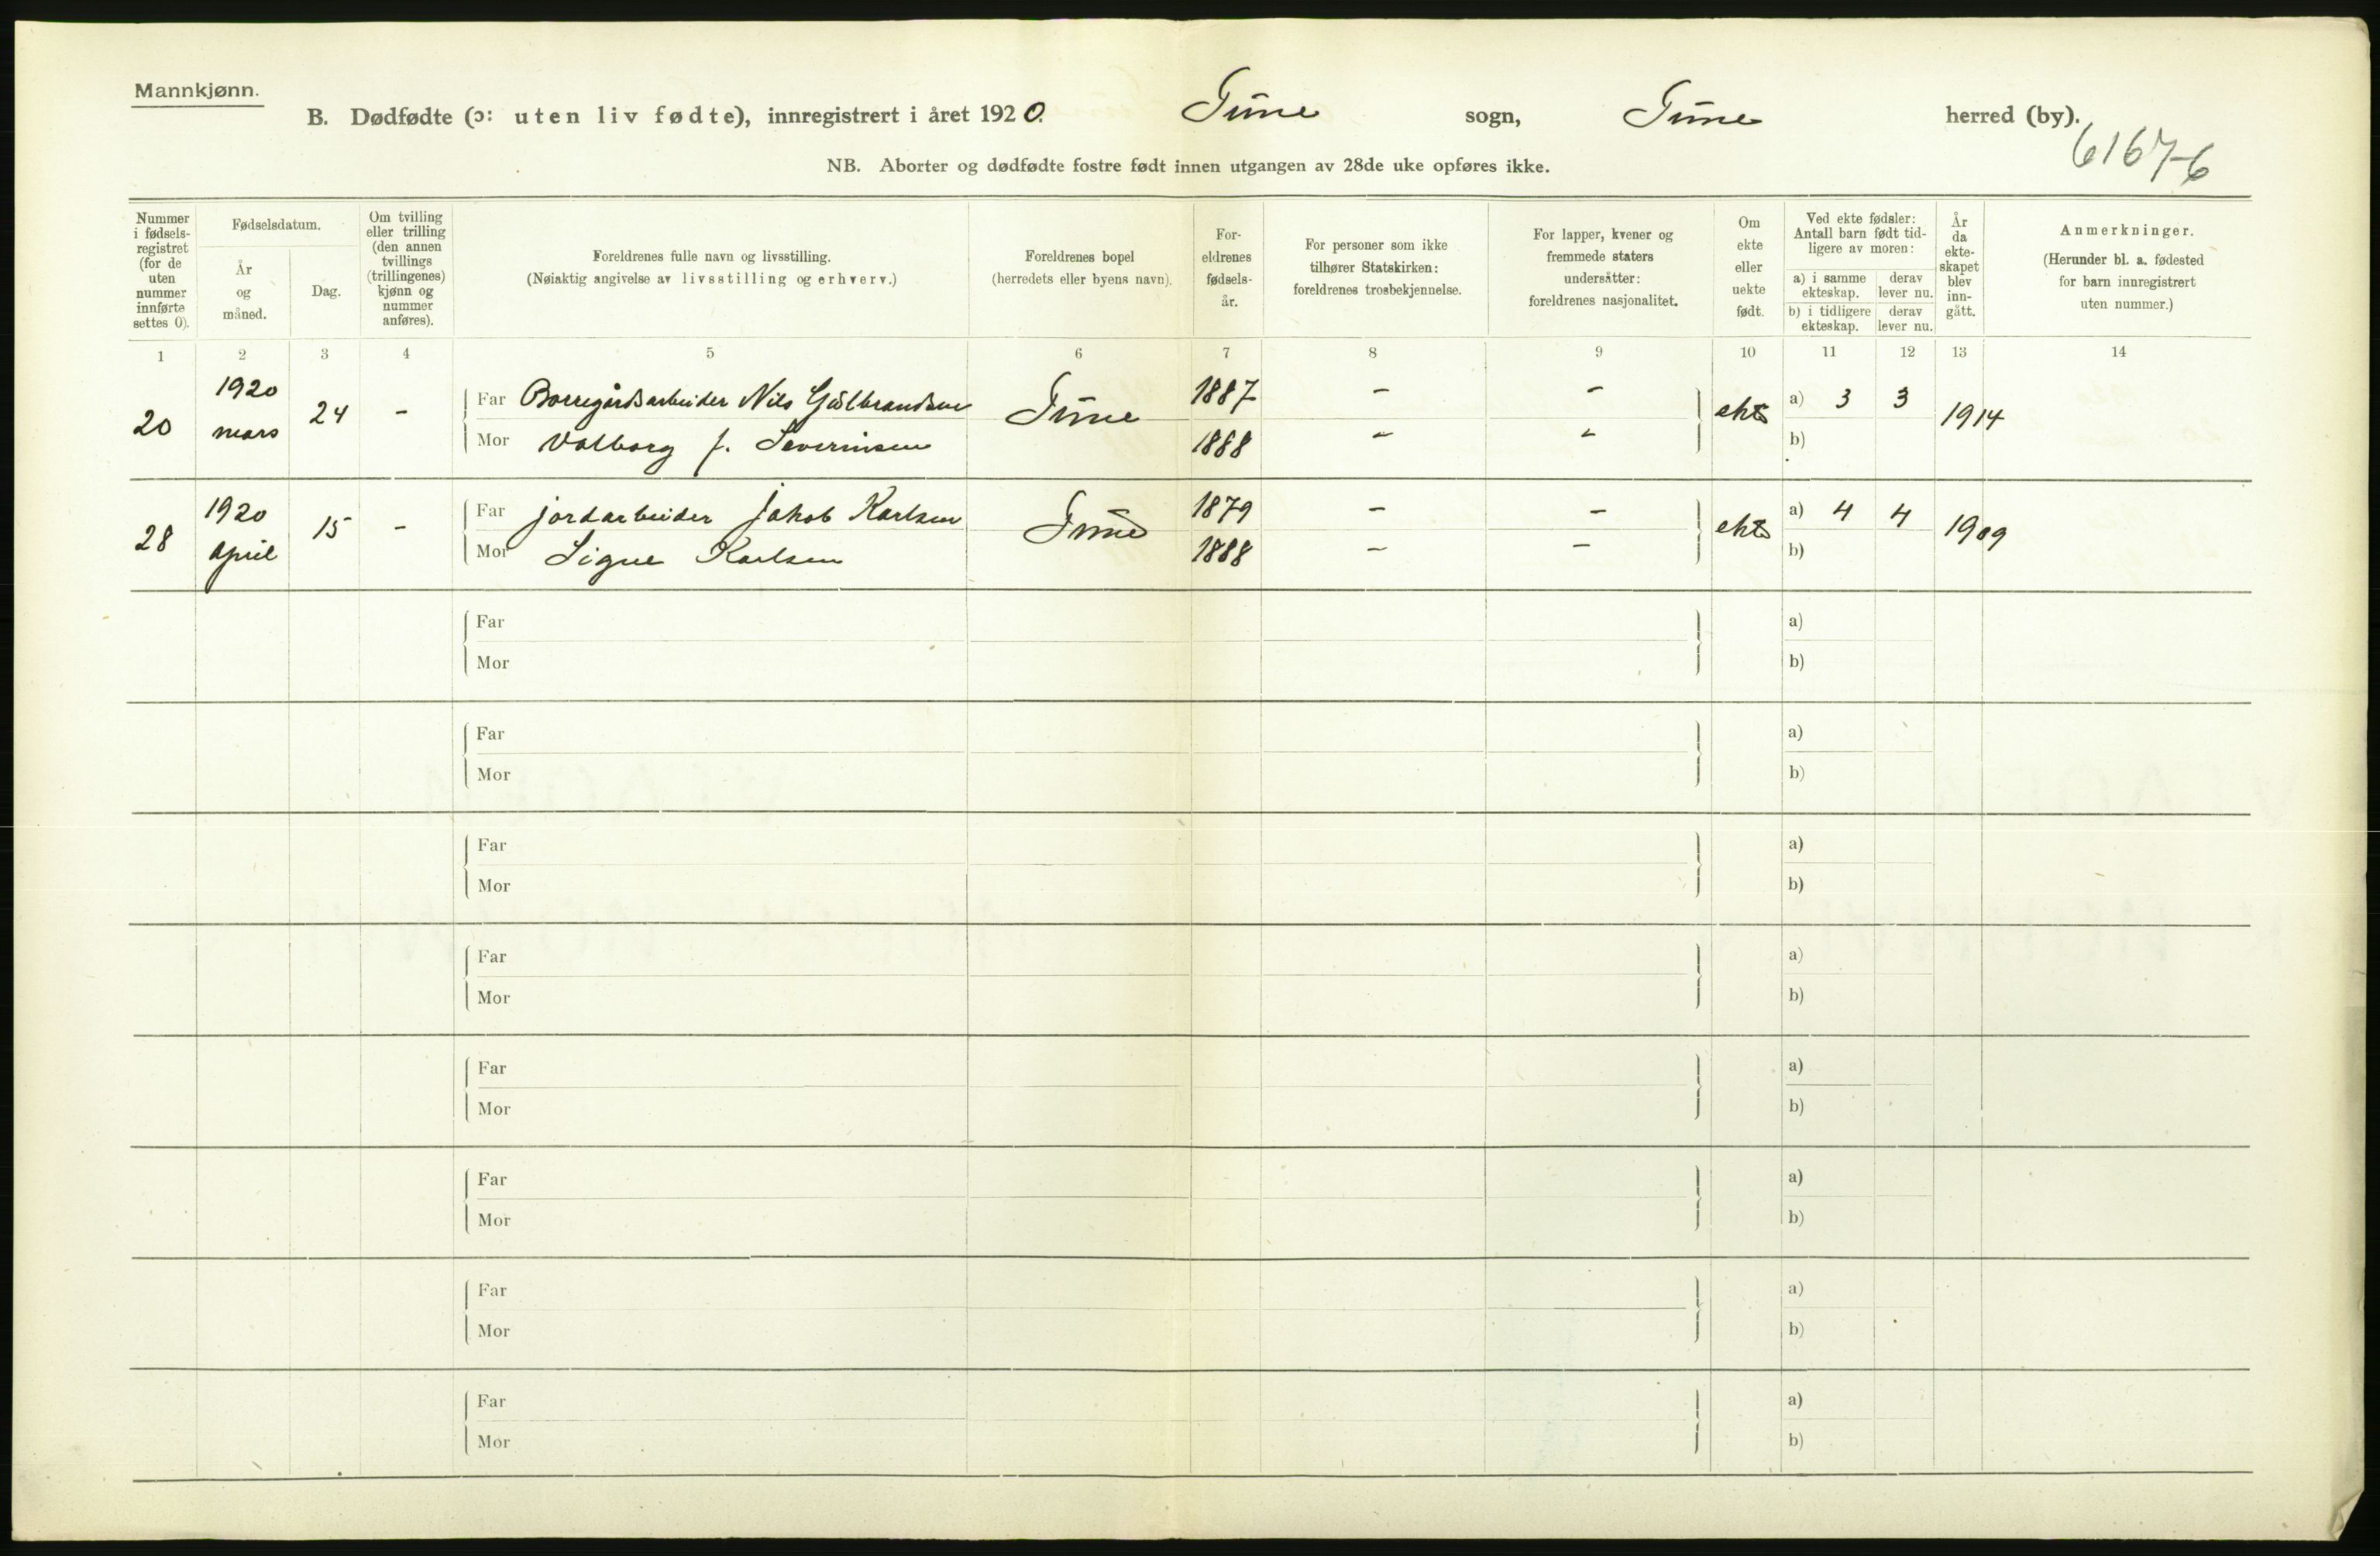 Mannkjønn.
B. Dødfødte (ɔ: uten liv fødte), innregistrert i året 1920. Tune sogn, Tune herred (by).
6167-6
NB. Aborter og dødfødte fostre født innen utgangen av 28de uke opføres ikke.
Nummer i fødsels-registret (for de uten nummer innførte settes 0).
Fødselsdatum.
År og måned.
Dag.
Om tvilling eller trilling (den annen tvillings (trillingenes) kjønn og nummer anføres).
Foreldrenes fulle navn og livsstilling.
(Nøiaktig angivelse av livsstilling og erhverv.)
Foreldrenes bopel
(herredets eller byens navn).
For-eldrenes fødsels-år.
For personer som ikke tilhører Statskirken: foreldrenes trosbekjennelse.
For lapper, kvener og fremmede staters undersåtter: foreldrenes nasjonalitet.
Om ekte eller uekte født.
Ved ekte fødsler: Antall barn født tid-ligere av moren:
a) i samme ekteskap.
derav lever nu.
b) i tidligere ekteskap.
derav lever nu.
År da ekte-skapet blev inn-gått.
Anmerkninger.
(Herunder bl. a. fødested for barn innregistrert uten nummer.)
1 2 3 4 5 6 7 8 9 10 11 12 13 14
20 1920 mars 24 - Far Borregårdsarbeider Nils Gulbrandsen Tune 1887 - - ekte a) 3 3 1914
Mor Valborg f. Severinsen 1888 - - b)
28 1920 april 15 - Far jordarbeider Jakob Karlsen Tune 1879 - - ekte a) 4 4 1909
Mor Signe Karlsen 1888 - - b)
Far a)
Mor b)
Far a)
Mor b)
Far a)
Mor b)
Far a)
Mor b)
Far a)
Mor b)
Far a)
Mor b)
Far a)
Mor b)
Far a)
Mor b)